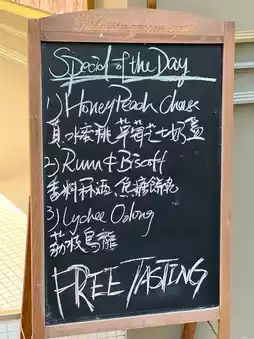 Special of the Day
1) Honey Peach Cheese
真水蜜桃草莓芝士奶蓋
2) Rum & Biscoff
香料林酒焦糖餅乾
3) Lychee Oolong
荔枝烏龍
FREE TASTING